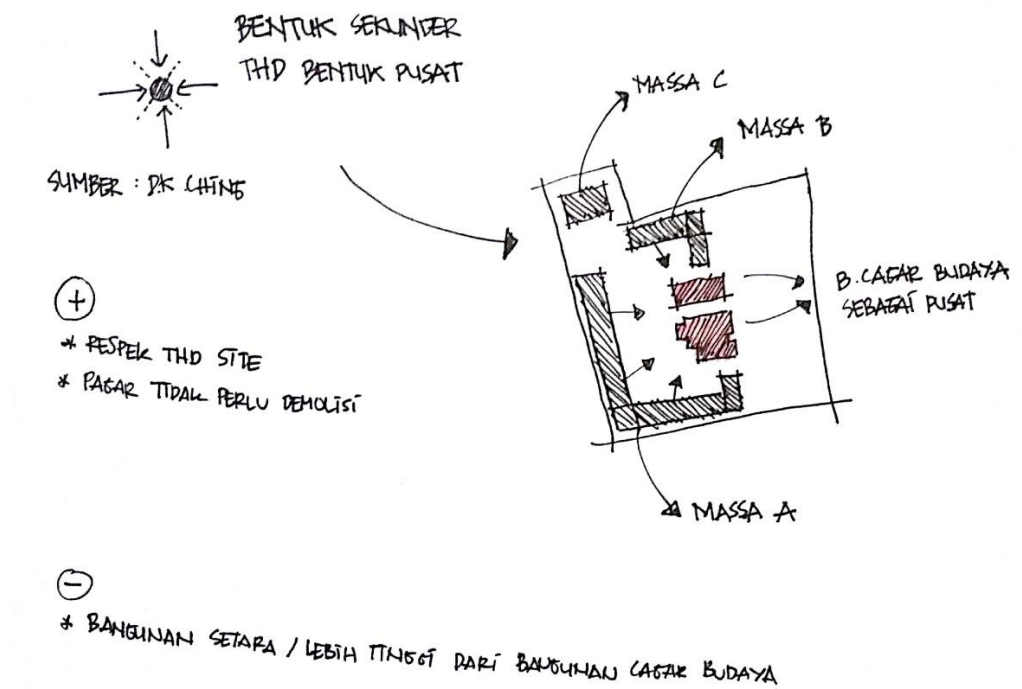 BENTUK SEKUNDER
THD BENTUK PUSAT
SUMBER : D.K CHING
MASSA C
MASSA B
B. CAGAR BUDAYA
SEBAGAI PUSAT
MASSA A
+
* RESPEK THD SITE
* PAGAR TIDAK PERLU DEMOLISI
-
* BANGUNAN SETARA / LEBIH TINGGI DARI BANGUNAN CAGAR BUDAYA